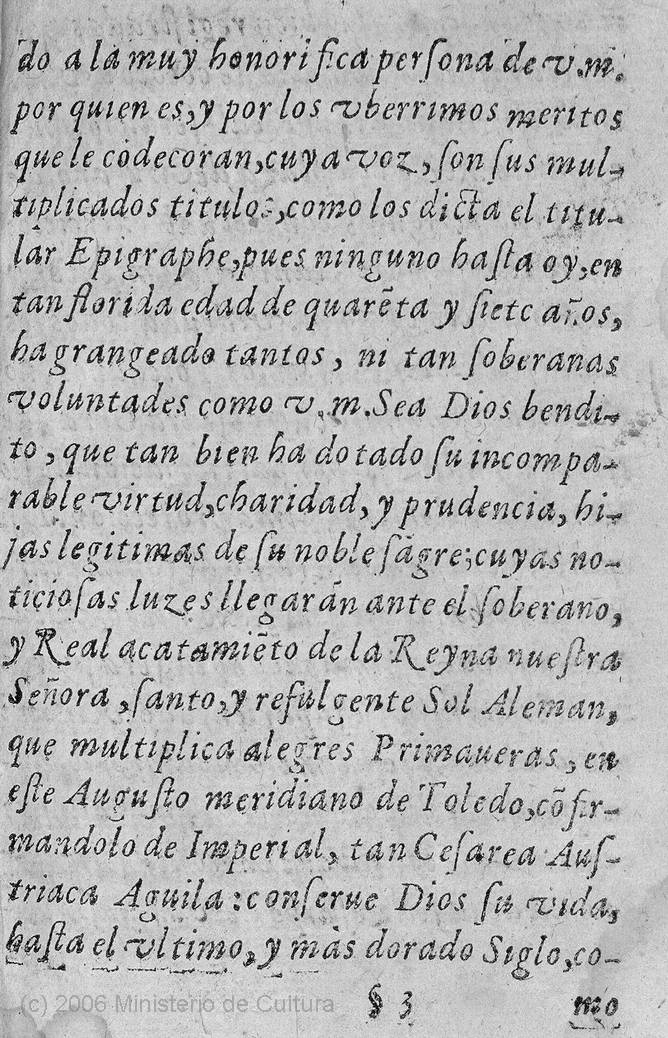 do a la muy honorifica perſona de v.m.
por quien es,y por los vberrimos meritos
que le cõdecoran,cuya voz, ſon ſus mul-
tiplicados titulos,como los dicta el titu-
lar Epigraphe,pues ninguno haſta oy,en
tan florida edad de quarẽta y ſiete años,
ha grangeado tantos, ni tan ſoberanas
voluntades como v.m.Sea Dios bendi-
to, que tan bien ha dotado ſu incompa-
rable virtud,charidad, y prudencia, hi-
jas legitimas de ſu noble ſãgre;cuyas no-
ticioſas luzes llegarán ante el ſoberano,
y Real acatamiẽto de la Reyna nueſtra
Señora ,ſanto,y refulgente Sol Aleman,
que multiplica alegres Primaueras, en
eſte Auguſto meridiano de Toledo,cõfir-
mandolo de Imperial, tan Ceſarea Auſ-
triaca Aguila:conſerue Dios ſu vida,
haſta el vltimo, y màs dorado Siglo,co-
§ 3 mo
(c) 2006 Ministerio de Cultura